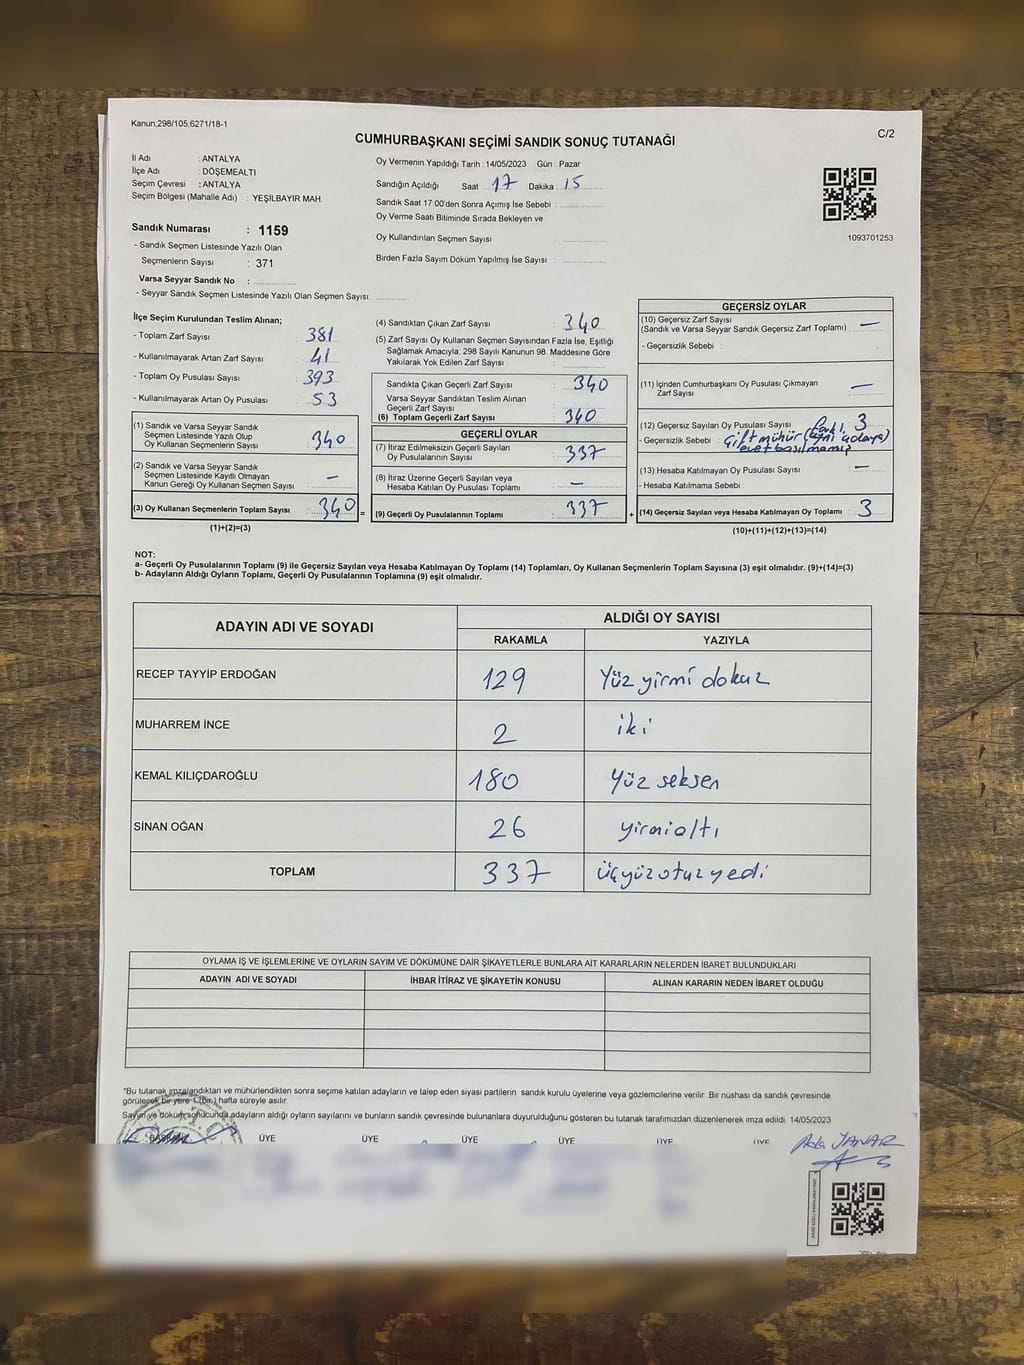 Kanun,298/105,6271/18-1
C/2
CUMHURBAŞKANI SEÇİMİ SANDIK SONUÇ TUTANAĞI
İl Adı : ANTALYA
İlçe Adı : DÖŞEMEALTI
Seçim Çevresi : ANTALYA
Seçim Bölgesi (Mahalle Adı) : YEŞİLBAYIR MAH.
Sandık Numarası : 1159
- Sandık Seçmen Listesinde Yazılı Olan
Seçmenlerin Sayısı : 371
Varsa Seyyar Sandık No :
- Seyyar Sandık Seçmen Listesinde Yazılı Olan Seçmen Sayısı:
Oy Vermenin Yapıldığı Tarih : 14/05/2023 Gün : Pazar
Sandığın Açıldığı Saat : 17 Dakika : 15
Sandık Saat 17:00'den Sonra Açımış İse Sebebi :
Oy Verme Saati Bitiminde Sırada Bekleyen ve
Oy Kullandırılan Seçmen Sayısı :
Birden Fazla Sayım Döküm Yapılmış İse Sayısı :
1093701253
İlçe Seçim Kurulundan Teslim Alınan;
- Toplam Zarf Sayısı : 381
- Kullanılmayarak Artan Zarf Sayısı : 41
- Toplam Oy Pusulası Sayısı : 393
- Kullanılmayarak Artan Oy Pusulası : 53
(1) Sandık ve Varsa Seyyar Sandık
Seçmen Listesinde Yazılı Olup
Oy Kullanan Seçmenlerin Sayısı : 340
(2) Sandık ve Varsa Seyyar Sandık
Seçmen Listesinde Kayıtlı Olmayan
Kanun Gereği Oy Kullanan Seçmen Sayısı : —
(3) Oy Kullanan Seçmenlerin Toplam Sayısı : 340 =
(1)+(2)=(3)
(4) Sandıktan Çıkan Zarf Sayısı : 340
(5) Zarf Sayısı Oy Kullanan Seçmen Sayısından Fazla İse, Eşitliği
Sağlamak Amacıyla; 298 Sayılı Kanunun 98. Maddesine Göre
Yakılarak Yok Edilen Zarf Sayısı :
Sandıkta Çıkan Geçerli Zarf Sayısı : 340
Varsa Seyyar Sandıktan Teslim Alınan
Geçerli Zarf Sayısı :
(6) Toplam Geçerli Zarf Sayısı : 340
GEÇERLİ OYLAR
(7) İtiraz Edilmeksizin Geçerli Sayılan
Oy Pusulalarının Sayısı : 337
(8) İtiraz Üzerine Geçerli Sayılan veya
Hesaba Katılan Oy Pusulası Toplamı : —
(9) Geçerli Oy Pusulalarının Toplamı : 337 +
GEÇERSİZ OYLAR
(10) Geçersiz Zarf Sayısı : —
(Sandık ve Varsa Seyyar Sandık Geçersiz Zarf Toplamı)
- Geçersizlik Sebebi :
(11) İçinden Cumhurbaşkanı Oy Pusulası Çıkmayan
Zarf Sayısı : —
(12) Geçersiz Sayılan Oy Pusulası Sayısı : 3
- Geçersizlik Sebebi : Çift mühür (aynı adaya)
evet basılmamış
(13) Hesaba Katılmayan Oy Pusulası Sayısı : —
- Hesaba Katılmama Sebebi :
(14) Geçersiz Sayılan veya Hesaba Katılmayan Oy Toplamı : 3
(10)+(11)+(12)+(13)=(14)
NOT:
a- Geçerli Oy Pusulalarının Toplamı (9) ile Geçersiz Sayılan veya Hesaba Katılmayan Oy Toplamı (14) Toplamları, Oy Kullanan Seçmenlerin Toplam Sayısına (3) eşit olmalıdır. (9)+(14)=(3)
b- Adayların Aldığı Oyların Toplamı, Geçerli Oy Pusulalarının Toplamına (9) eşit olmalıdır.
ADAYIN ADI VE SOYADI
ALDIĞI OY SAYISI
RAKAMLA YAZIYLA
RECEP TAYYİP ERDOĞAN 129 Yüz yirmi dokuz
MUHARREM İNCE 2 iki
KEMAL KILIÇDAROĞLU 180 Yüz seksen
SİNAN OĞAN 26 yirmialtı
TOPLAM 337 üçyüzotuzyedi
OYLAMA İŞ VE İŞLEMLERİNE VE OYLARIN SAYIM VE DÖKÜMÜNE DAİR ŞİKAYETLERLE BUNLARA AİT KARARLARIN NELERDEN İBARET BULUNDUKLARI
ADAYIN ADI VE SOYADI İHBAR İTİRAZ VE ŞİKAYETİN KONUSU ALINAN KARARIN NEDEN İBARET OLDUĞU
"Bu tutanak imzalandıktan ve mühürlendikten sonra seçime katılan adayların ve talep eden siyasi partilerin sandık kurulu üyelerine veya gözlemcilerine verilir. Bir nüshası da sandık çevresinde
görülecek bir yere 1 (bir) hafta süreyle asılır.
Sayım ve döküm sonucunda adayların aldığı oyların sayılarını ve bunların sandık çevresinde bulunanlara duyurulduğunu gösteren bu tutanak tarafımızdan düzenlenerek imza edildi. 14/05/2023
ÜYE ÜYE ÜYE ÜYE ÜYE ÜYE
YANAR